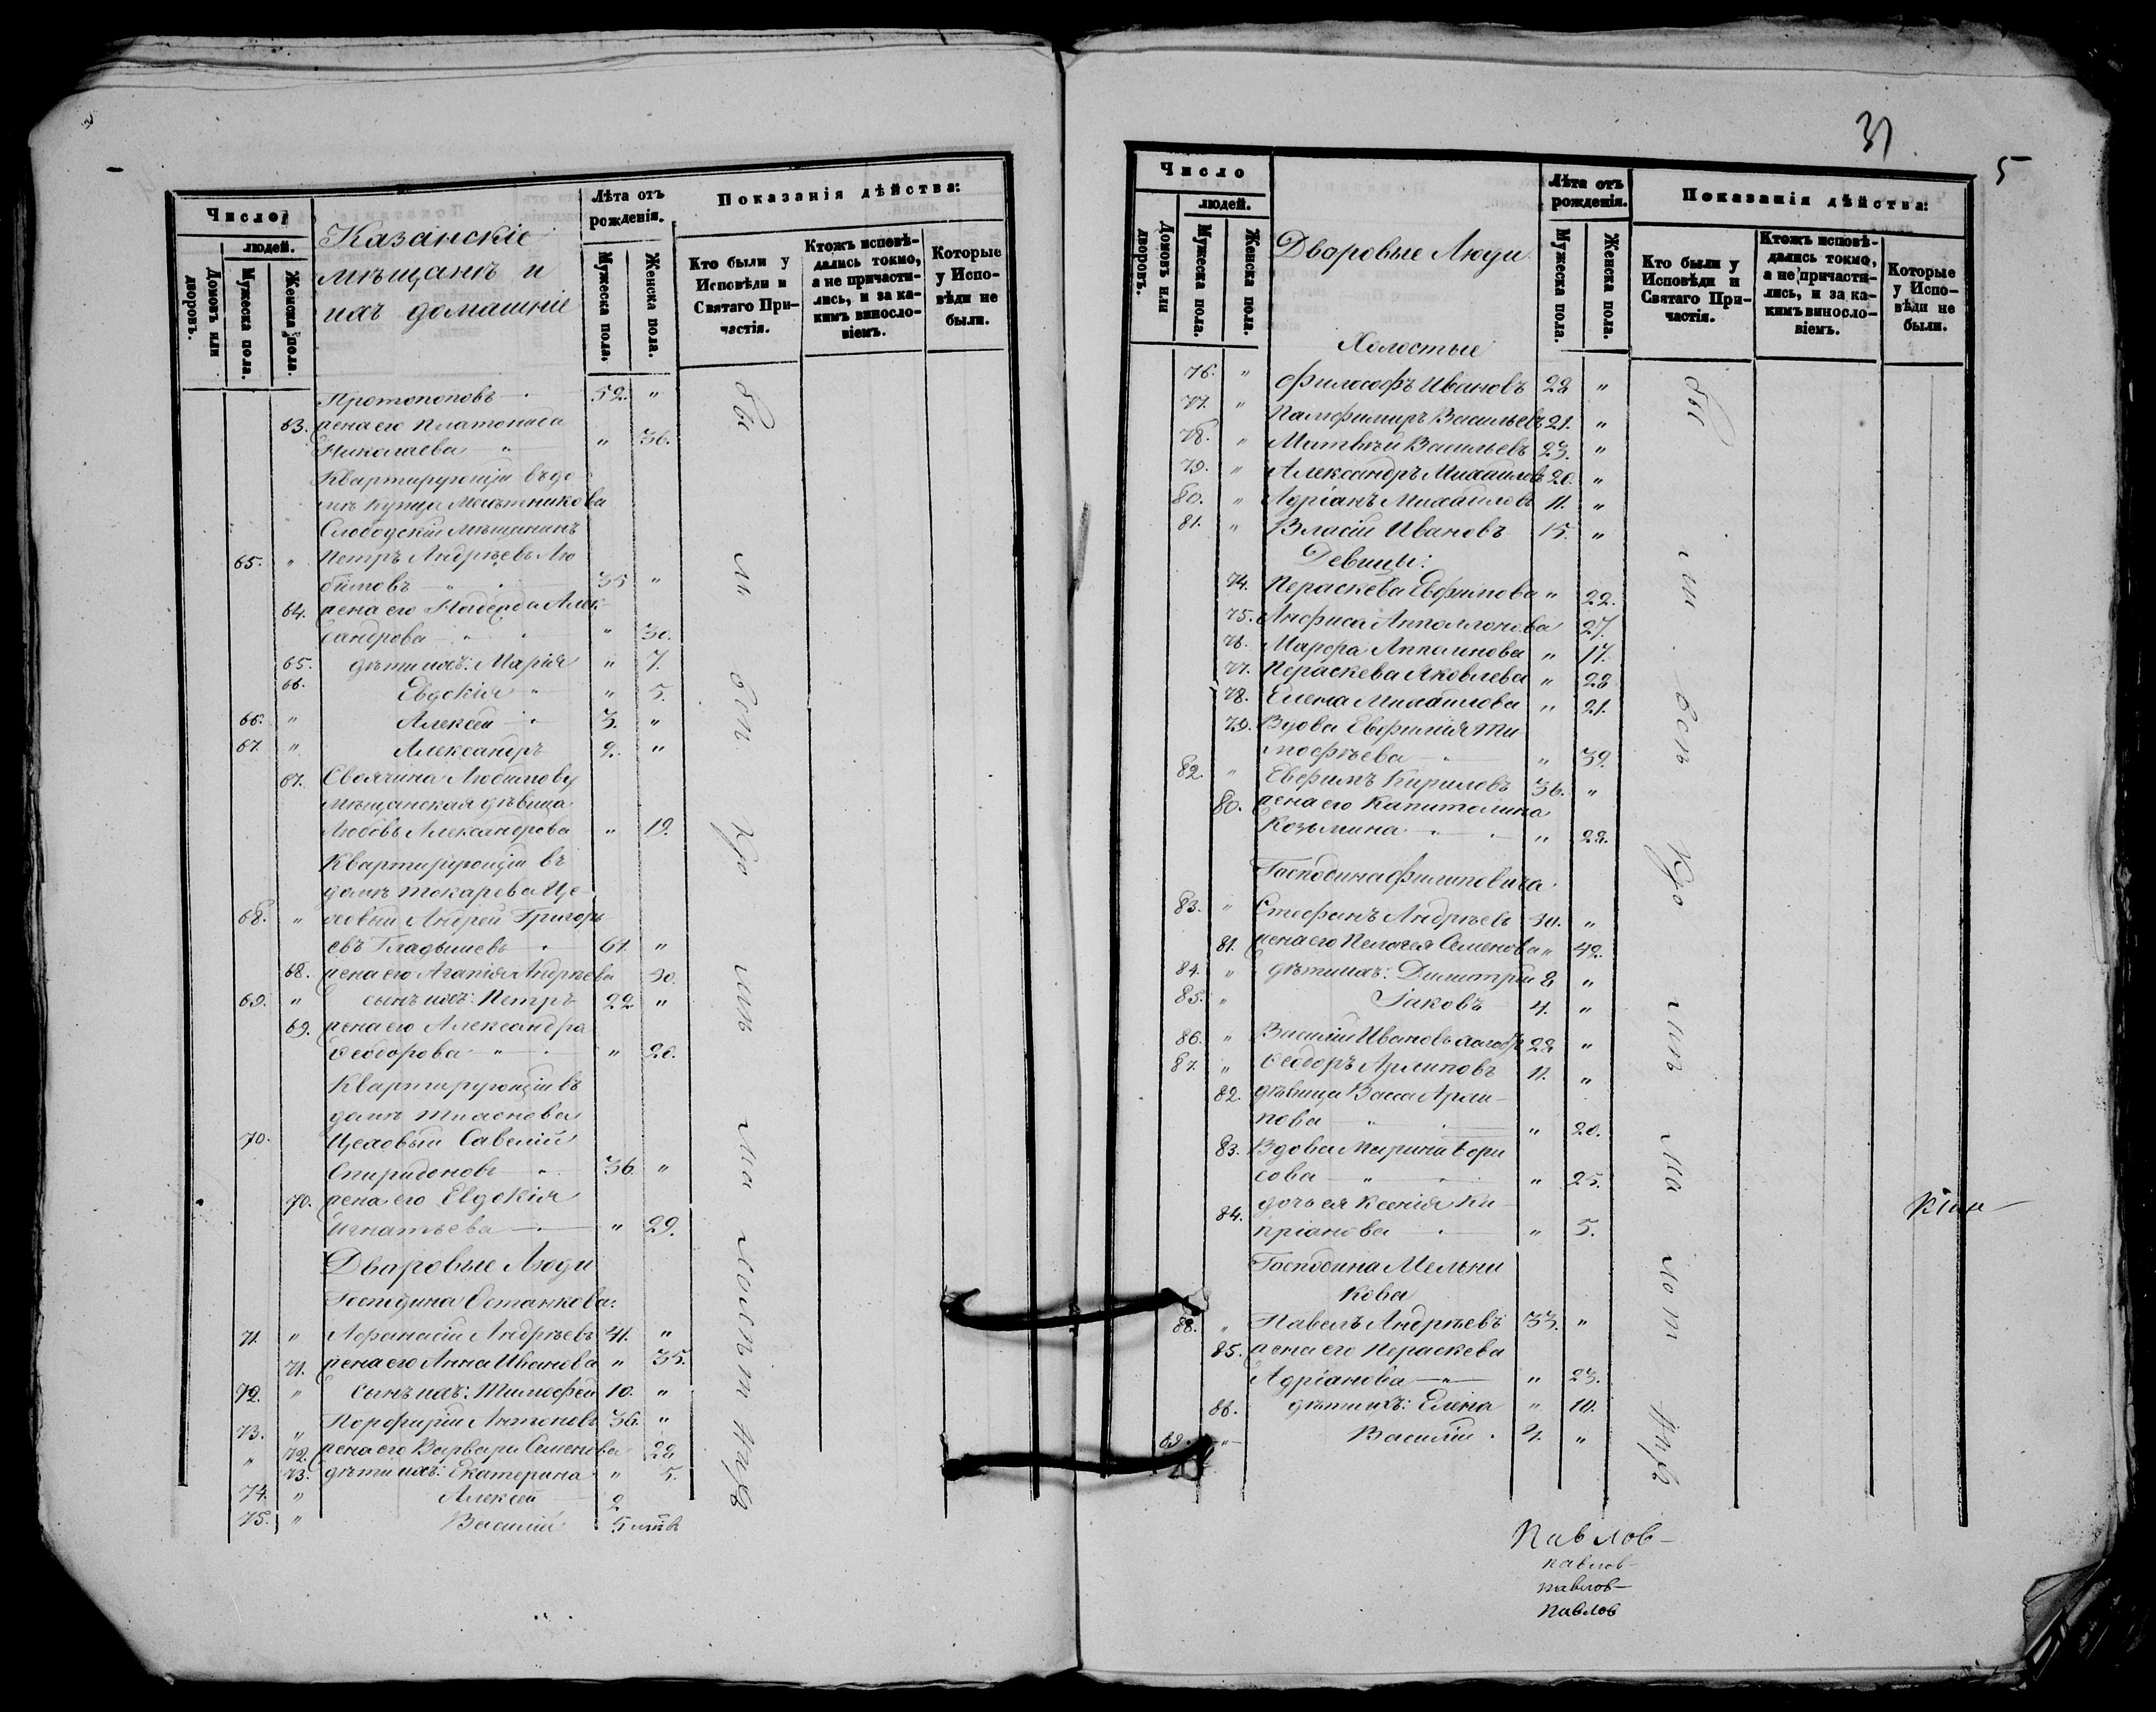 Число
людей.
Домовъ или дворовъ.
Мужеска пола.
Женска пола.
Казанскіе
мѣщанъ и
ихъ домашніе
Лѣта отъ рожденія.
Мужеска пола.
Женска пола.
Показанія дѣйства:
Кто были у Исповѣди и Святаго Причастія.
Ктожъ исповѣдались токмо, а не причастились, и за какимъ винословіемъ.
Которые у Исповѣди не были.
Протопоповъ 52. "
63. жена его Платонида
Николаева " " 36.
Квартирующій въ до
мѣ купца
Слободскій мѣщанинъ
65. " Петръ Андреевъ Лю
бимовъ " 35 "
64. жена его Надежда Алек
сандрова " 30.
65. дѣти ихъ: Марія " 7.
66. Евдокія " " 5.
66. " Алексѣй 3. "
67. " Александръ 2. "
67. Своячина Любимову
мѣщанская дѣвица
Любовь Александрова " 19.
Квартирующій въ
домѣ Токарева Це
68. " ховый Андрей Григорь
евъ Гладышевъ 61. "
68. жена его Агапія Андреева 50.
69. " сынъ ихъ: Петръ 22 "
69. жена его Александра
Ѳеодорова " " 20.
Квартирующій въ
домѣ Тихонова
70. Цеховый Савелій
Спиридоновъ 36. "
70. жена его Евдокія
Игнатьева " 29.
Дворовые Люди
Господина Останкова:
71. " Аѳанасій Андреевъ 41. "
71. жена его Анна Иванова " 35.
72. " сынъ ихъ: Тимофей 10. "
73. " Порфирій Антоновъ 36. "
" 72. жена его Варвара Семенова 28
73. дѣти ихъ: Екатерина " 5.
74. " Алексѣй 2
75. " Василій 5
31
5
Число
людей.
Домовъ или дворовъ.
Мужеска пола.
Женска пола.
Дворовые Люди
Лѣта отъ рожденія.
Мужеска пола.
Женска пола.
Показанія дѣйства:
Кто были у Исповѣди и Святаго Причастія.
Ктожъ исповѣдались токмо, а не причастились, и за какимъ винословіемъ.
Которые у Исповѣди не были.
Холостые
76. " Философъ Ивановъ 28 "
77. " Васильевъ 21. "
78. " Матвѣй Васильевъ 23. "
79. " Александръ Михайловъ 20. "
80. " Адріанъ Михайловъ 11. "
81. " Власій Ивановъ 15. "
Девицы:
74. Пераскева Евфимова " 22.
75. Анфиса Апполлонова 27.
76. Марфа Апполинова " 17.
77. Пераскева Яковлева " 28
78. Елена Михайлова " 21.
79. Вдова Евфимія Ти
мофѣева " 39.
82. " Евфимъ Кириловъ 36. "
80. жена его Капитолина
Козьмина " 28.
Господина Филиповича
83. " Стефанъ Андреевъ 50. "
81. жена его Пелагея Семенова " 42.
84. " дѣти ихъ: Димитрій 8 "
85. " Іаковъ 4. "
86. " Василій Ивановъ 28 "
87. " Ѳеодоръ Архиповъ 11. "
82. дѣвица Васса Архи-
пова " " 20.
83. Вдова Марина Бори
сова " " 25.
84. дочь ея Ксенія Ки
пріанова " 5.
Господина Мельни
кова
88. " Павелъ Андреевъ 33. "
85. жена его Пераскева
Адріанова " " 23.
86. дѣти ихъ: Елена " 10.
89. " Василій 4. "
Павлов-
павлов-
павлов-
павлов